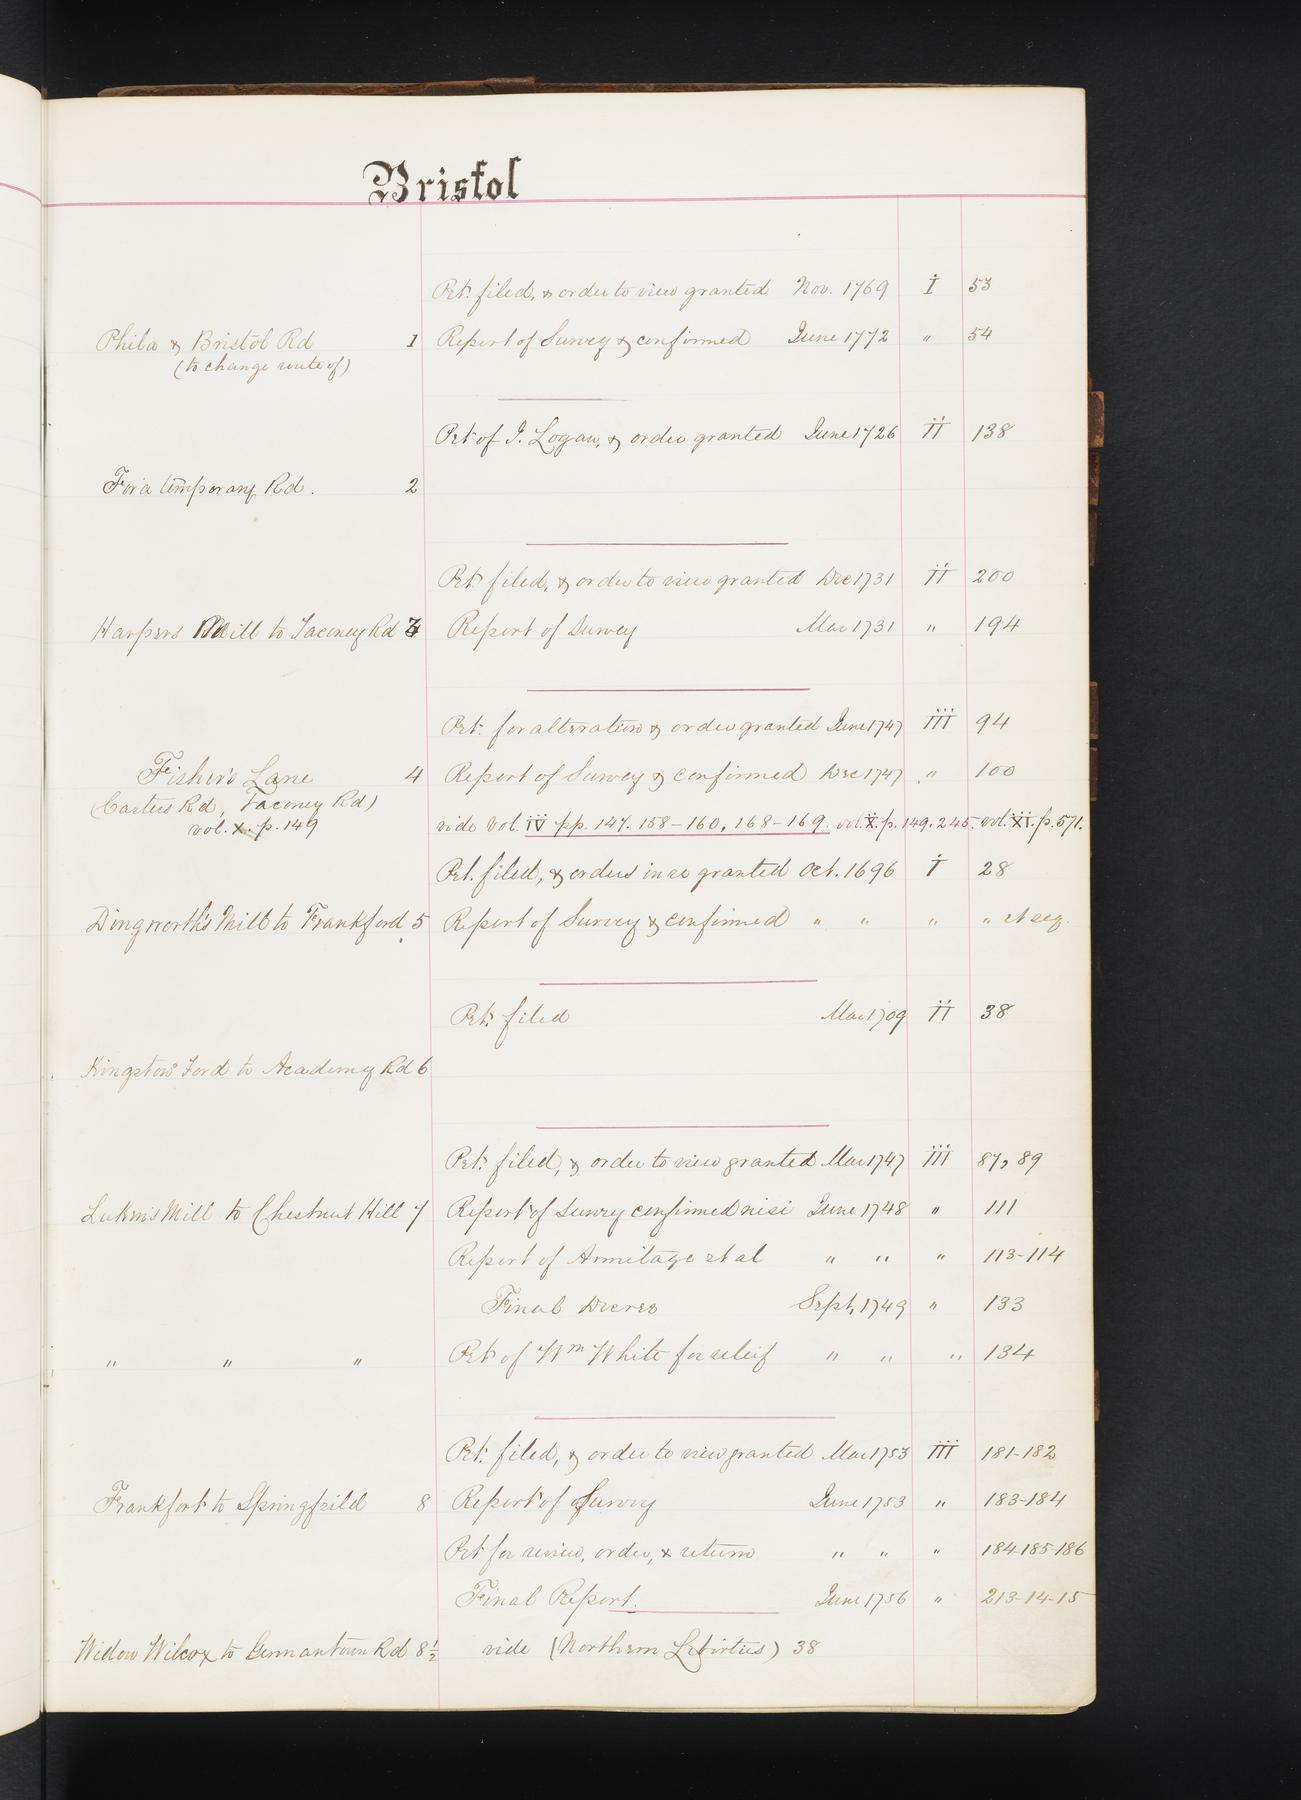 Bristol
Pet. filed, & order to view granted Nov. 1769 I 53
Phila & Bristol Rd 1 Report of Survey & confirmed June 1772 " 54
(to change route of)
Pet of J. Logan, & order granted June 1726 II 138
For a temporary Rd. 2
Pet. filed, & order to view granted Dec 1731 II 200
Harpers Mill to Taconey Rd 3 Report of Survey Mar 1731 " 194
Pet. for alteration & order granted June 1747 III 94
Fisher's Lane 4 Report of Survey & confirmed Dec 1747 " 100
(Carters Rd, Taconey Rd)
vol. X. p. 149 vide Vol. IV pp. 147. 158-160, 168-169. vol. X. p. 149. 245. vol. XI. p. 571.
Pet. filed, & orders in re granted Oct. 1696 I 28
Dingworth's Mill to Frankford 5 Report of Survey & confirmed " " " " et seq.
Pet. filed Mar 1709 II 38
Kingston Ford to Academy Rd 6
Pet. filed, & order to view granted Mar 1747 III 87, 89
Luken's Mill to Chestnut Hill 7 Report of Survey confirmed nisi June 1748 " 111
Report of Armitage et al " " " 113-114
Final Decree Sept, 1749 " 133
" " " Pet of Wm White for releif " " " 134
Pet. filed, & order to view granted Mar 1753 III 181-182
Frankfort to Springfield 8 Report of Survey June 1753 " 183-184
Pet for review, order, & return " " " 184-185-186
Final Report. June 1756 " 213-14-15
Widow Wilcox to Germantown Rd 8½ vide (Northern Libirties) 38